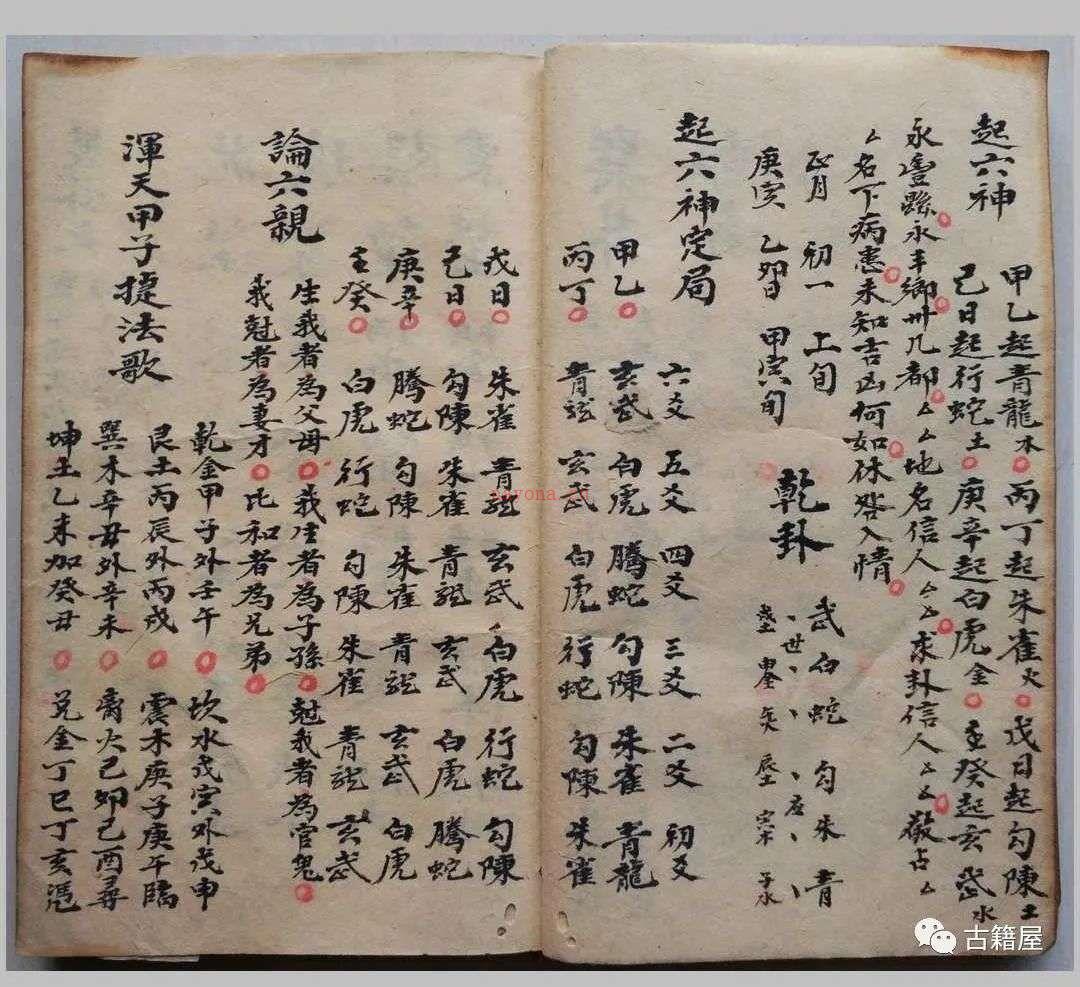 起六神
甲乙起青龍木 丙丁起朱雀火 戊日起勾陳土
己日起行蛇土 庚辛起白虎金 壬癸起玄武水
永豐縣永丰鄉卅几都厶厶地名信人厶厶求卦信人厶厶敬占厶
厶名下病患未知吉凶何如 入情
正月 初一 上旬
庚寅 乙卯日 甲寅旬
乾卦
武白蛇勾朱青
世 應
辰土 寅木 子水
起六神定局
六爻 五爻 四爻 三爻 二爻 初爻
甲乙 玄武 白虎 騰蛇 勾陳 朱雀 青龍
丙丁 青龍 玄武 白虎 行蛇 勾陳 朱雀
戊日 朱雀 青龍 玄武 白虎 行蛇 勾陳
己日 勾陳 朱雀 青龍 玄武 白虎 騰蛇
庚辛 騰蛇 勾陳 朱雀 青龍 玄武 白虎
壬癸 白虎 行蛇 勾陳 朱雀 青龍 玄武
論六親
生我者為父母 我生者為子孫 尅我者為官鬼
我尅者為妻才 比和者為兄弟
渾天甲子捷法歌
乾金甲子外壬午 坎水戊寅外戊申
艮土丙辰外丙戌 震木庚子庚午臨
巽木辛丑外辛未 离火己卯己酉尋
坤土乙未加癸丑 兌金丁巳丁亥憑
古籍屋